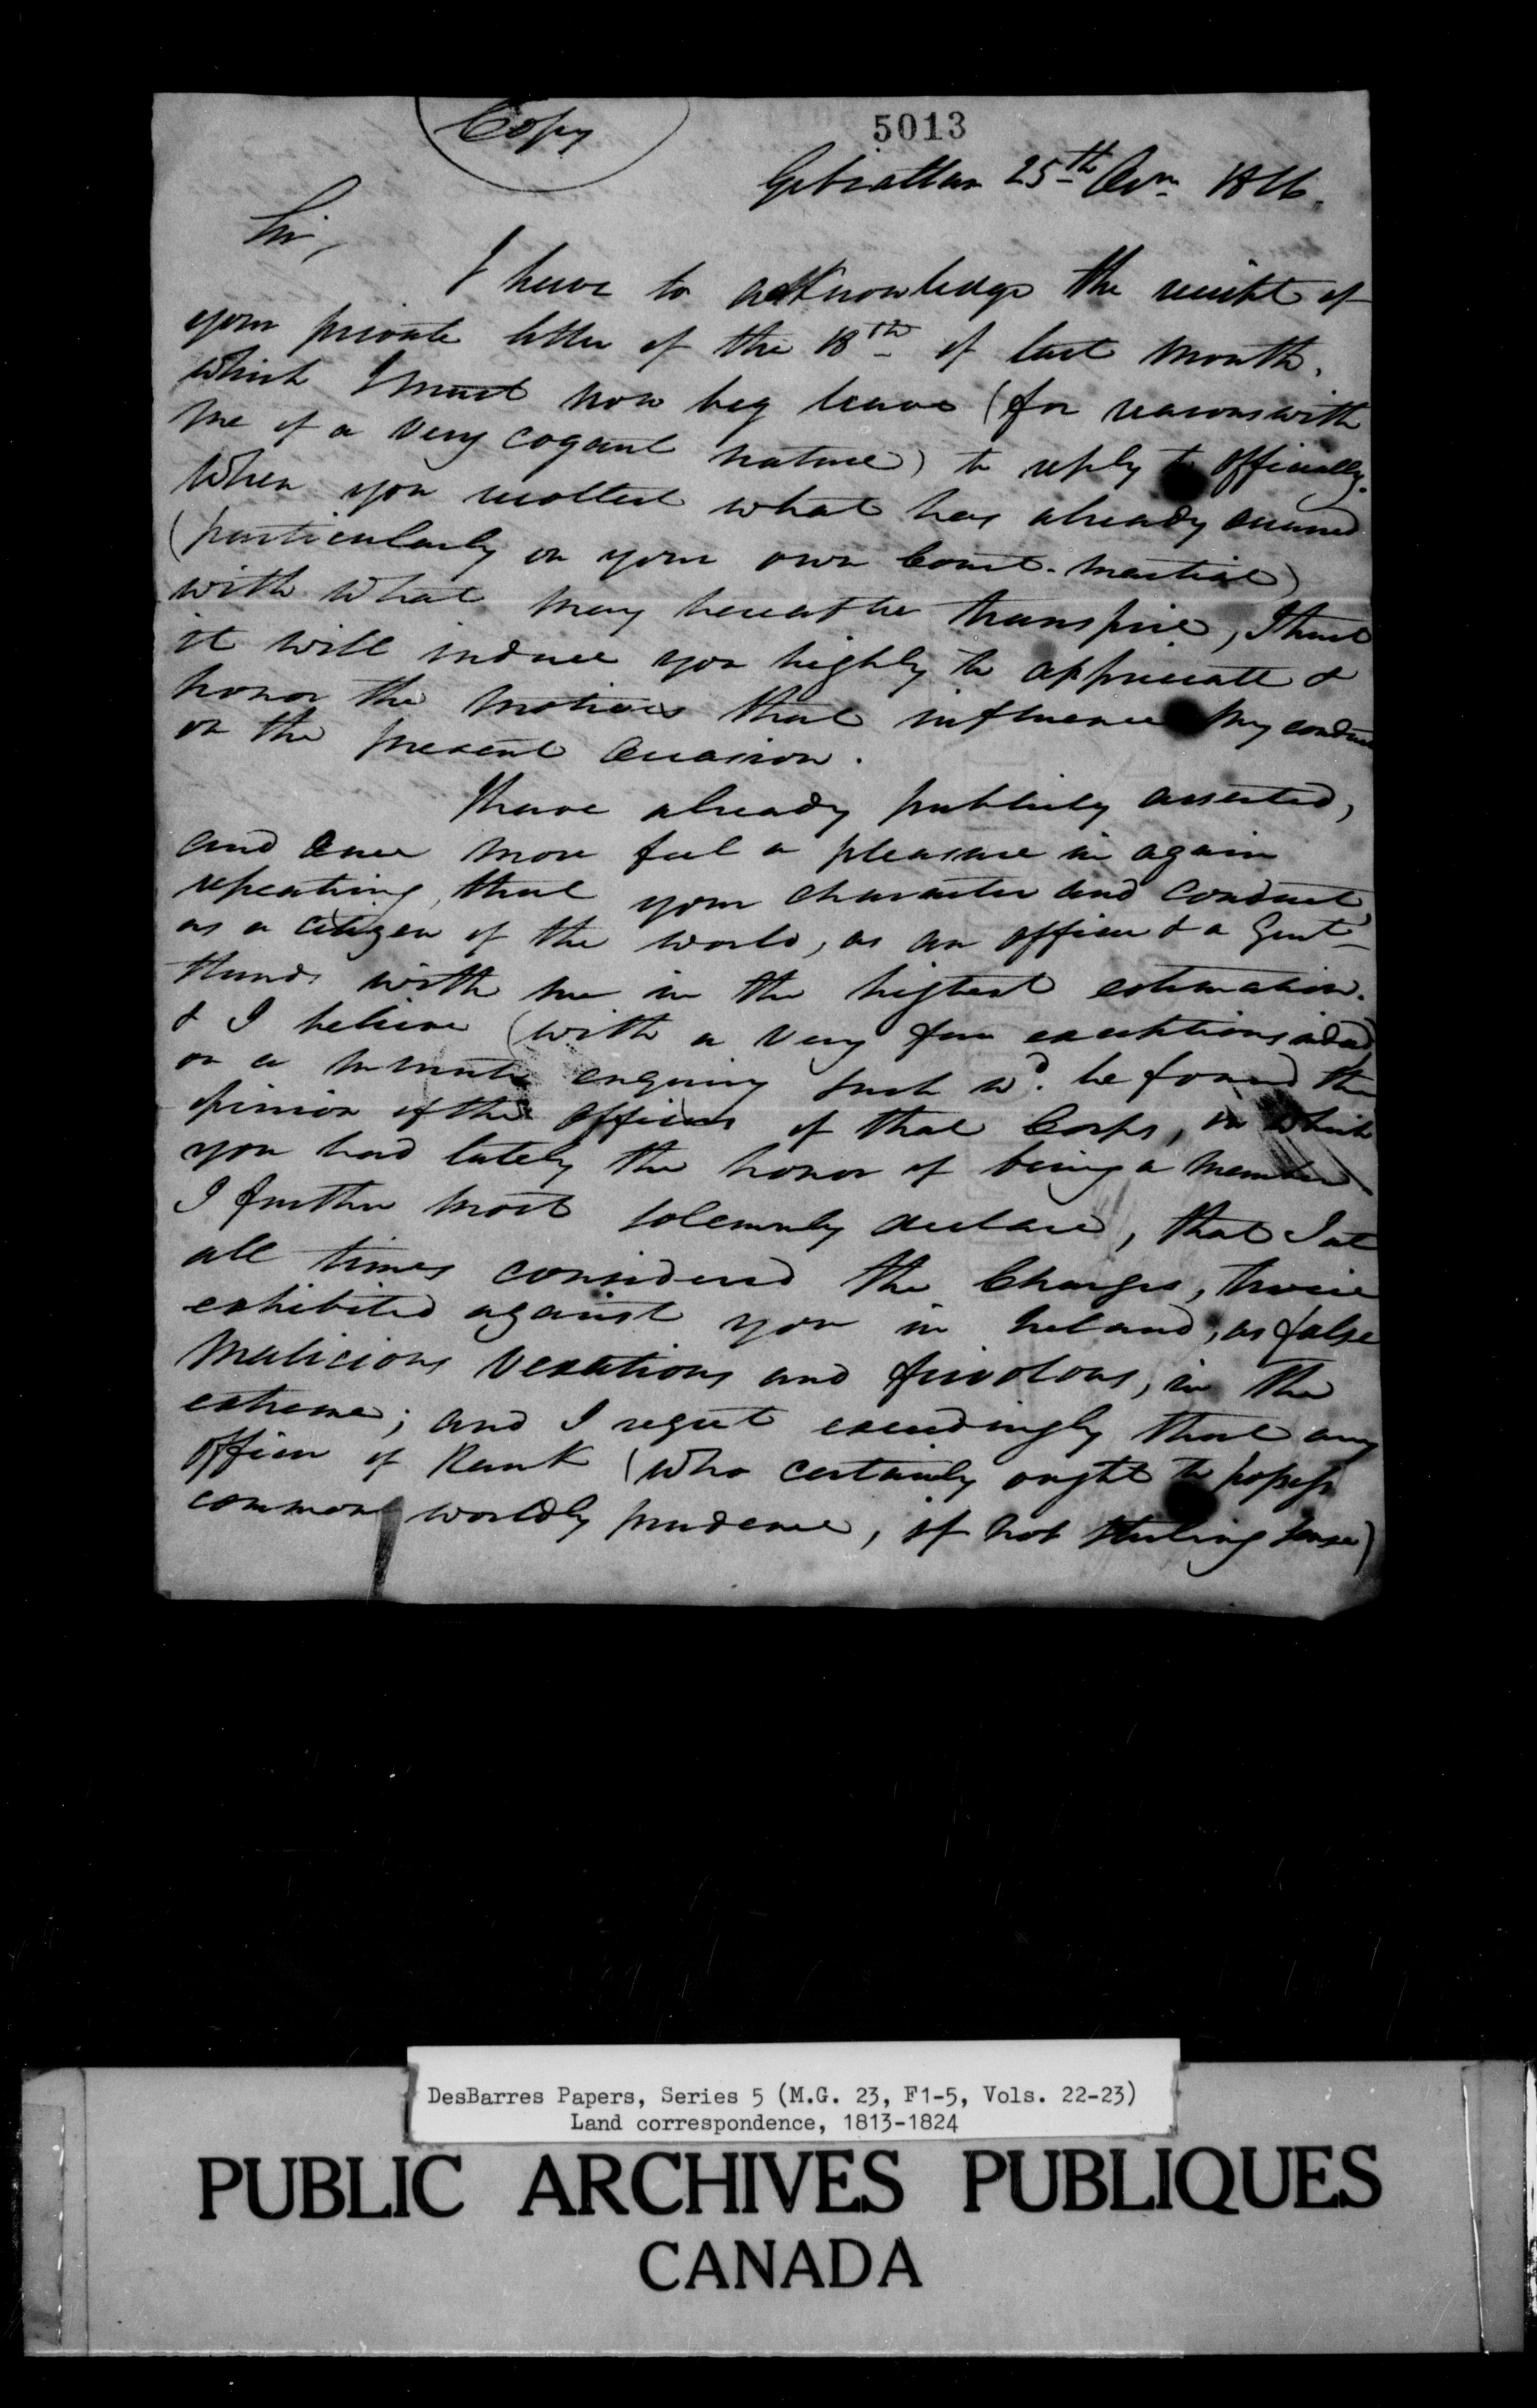 Copy
5013
Gibraltar 25th 1816.
Sir,
I have to acknowledge the receipt of
your private letter of the 18th of last month,
which I must now beg leave (for reasons with
me of a very cogant nature) to reply to officially.
When you recollect what has already occurred
(particularly on your own Court-Martial)
with what may hereafter transpire, I trust
it will induce you highly to appreciate &
honor the motives that influence my conduct
on the present occasion.
I have already publicly asserted,
and once more feel a pleasure in again
repeating, that your character and conduct,
as a citizen of the world, as an officer & a Gent
stands with me in the highest estimation.
& I believe (with a very few exceptions indeed)
on a minute enquiry such wd. be found the
opinion of the officers of that Corps, in which
you had lately the honor of being a member
I further most solemnly declare, that I at
all times considered the Charges, twice
exhibited against you in Ireland, as false
malicious vexatious and frivolous, in the
extreme; and I regret exceedingly that any
officer of Rank (who certainly ought to possess
common worldly prudence, if not sterling sense)
DesBarres Papers, Series 5 (M.G. 23, F1-5, Vols. 22-23)
Land correspondence, 1813-1824
PUBLIC ARCHIVES PUBLIQUES
CANADA